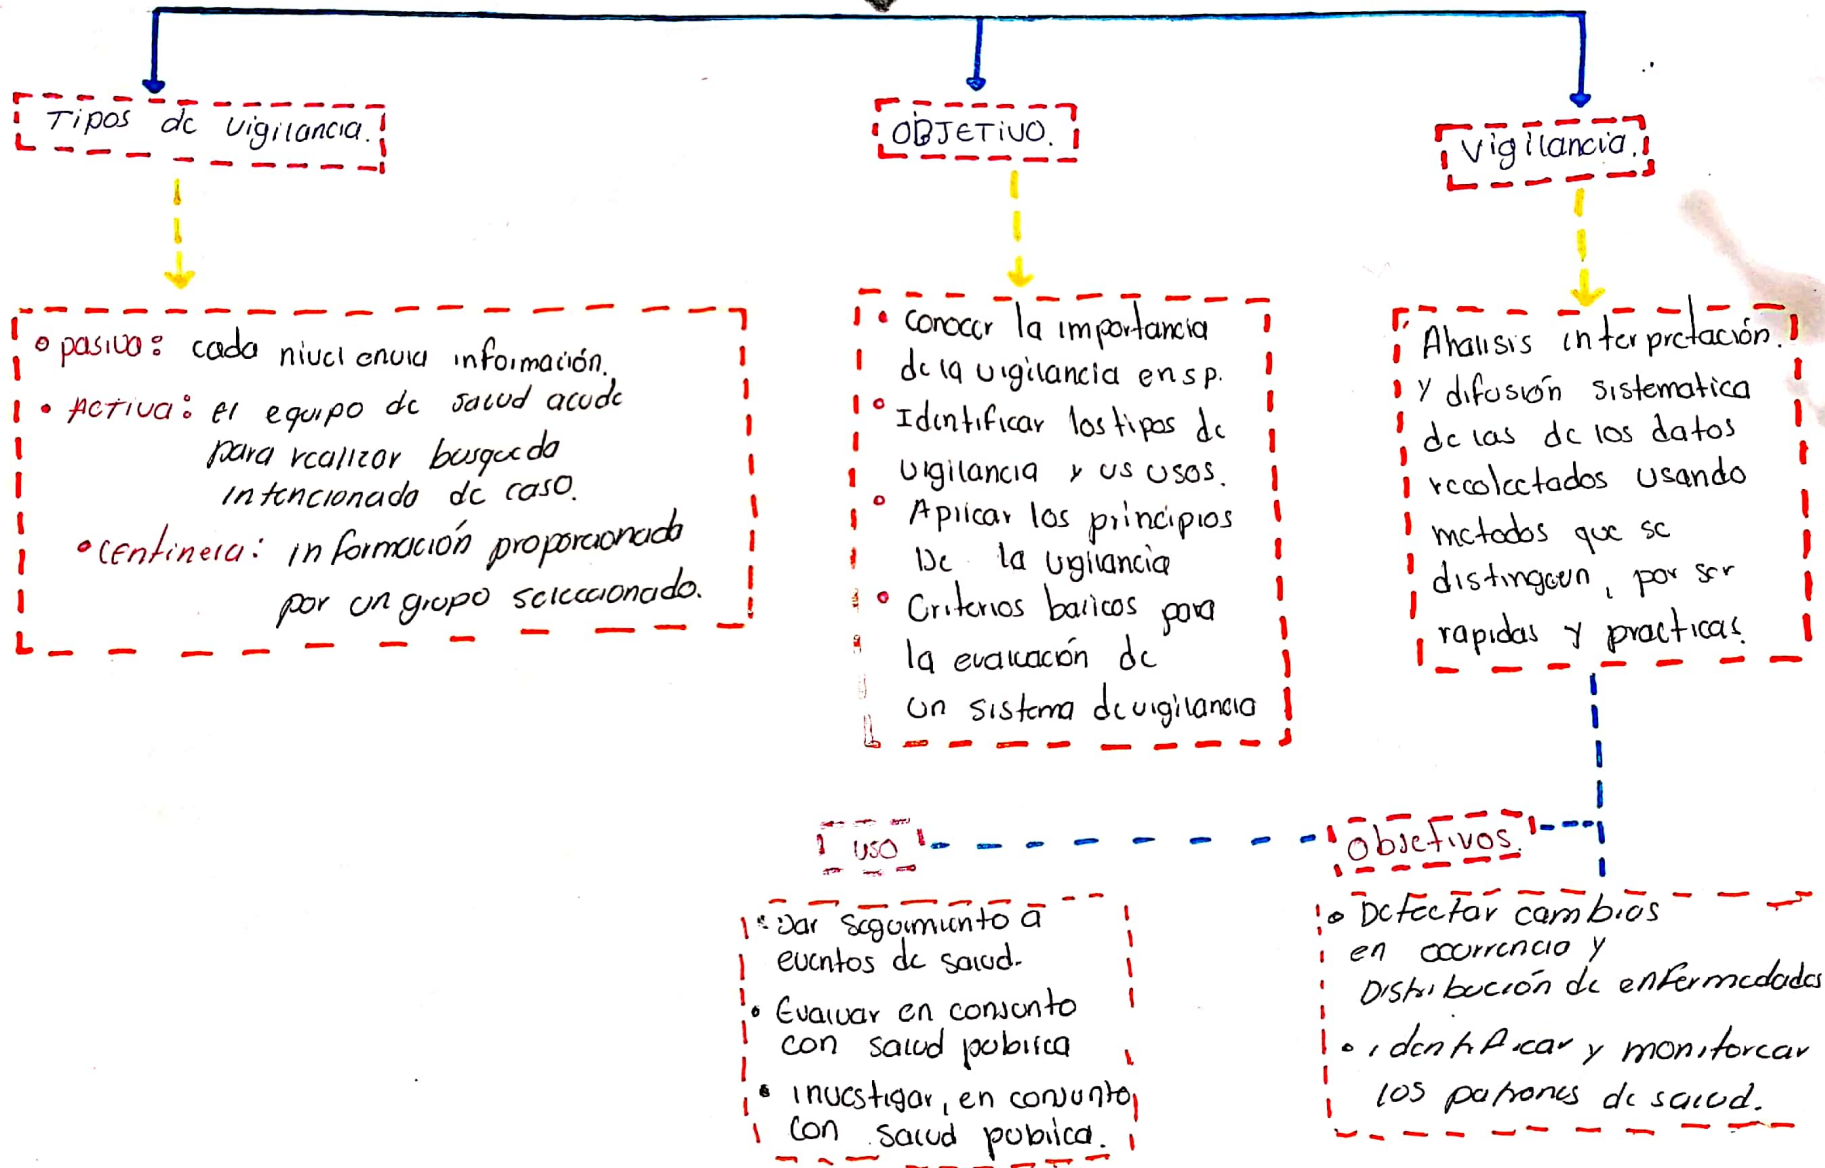 Tipos de vigilancia.
OBJETIVO.
Vigilancia.
pasiva: cada nivel envia información.
Activa: el equipo de salud acude
para realizar busqueda
intencionada de caso.
Centinela: información proporcionada
por un grupo seleccionado.
Conocer la importancia
de la vigilancia en sp.
Identificar los tipos de
vigilancia y us usos.
Aplicar los principios
De la vigilancia
Criterios basicos para
la evaluación de
un sistema de vigilancia
Analisis interpretación.
y difusión sistematica
de las de los datos
recolectados usando
metodos que se
distinguen, por ser
rapidas y practicas.
uso
Objetivos.
Dar seguimiento a
eventos de salud.
Evaluar en conjunto
con salud publica
investigar, en conjunto
con salud publica.
Detectar cambios
en ocurrencia y
Distribución de enfermedades
identificar y monitorear
los patrones de salud.